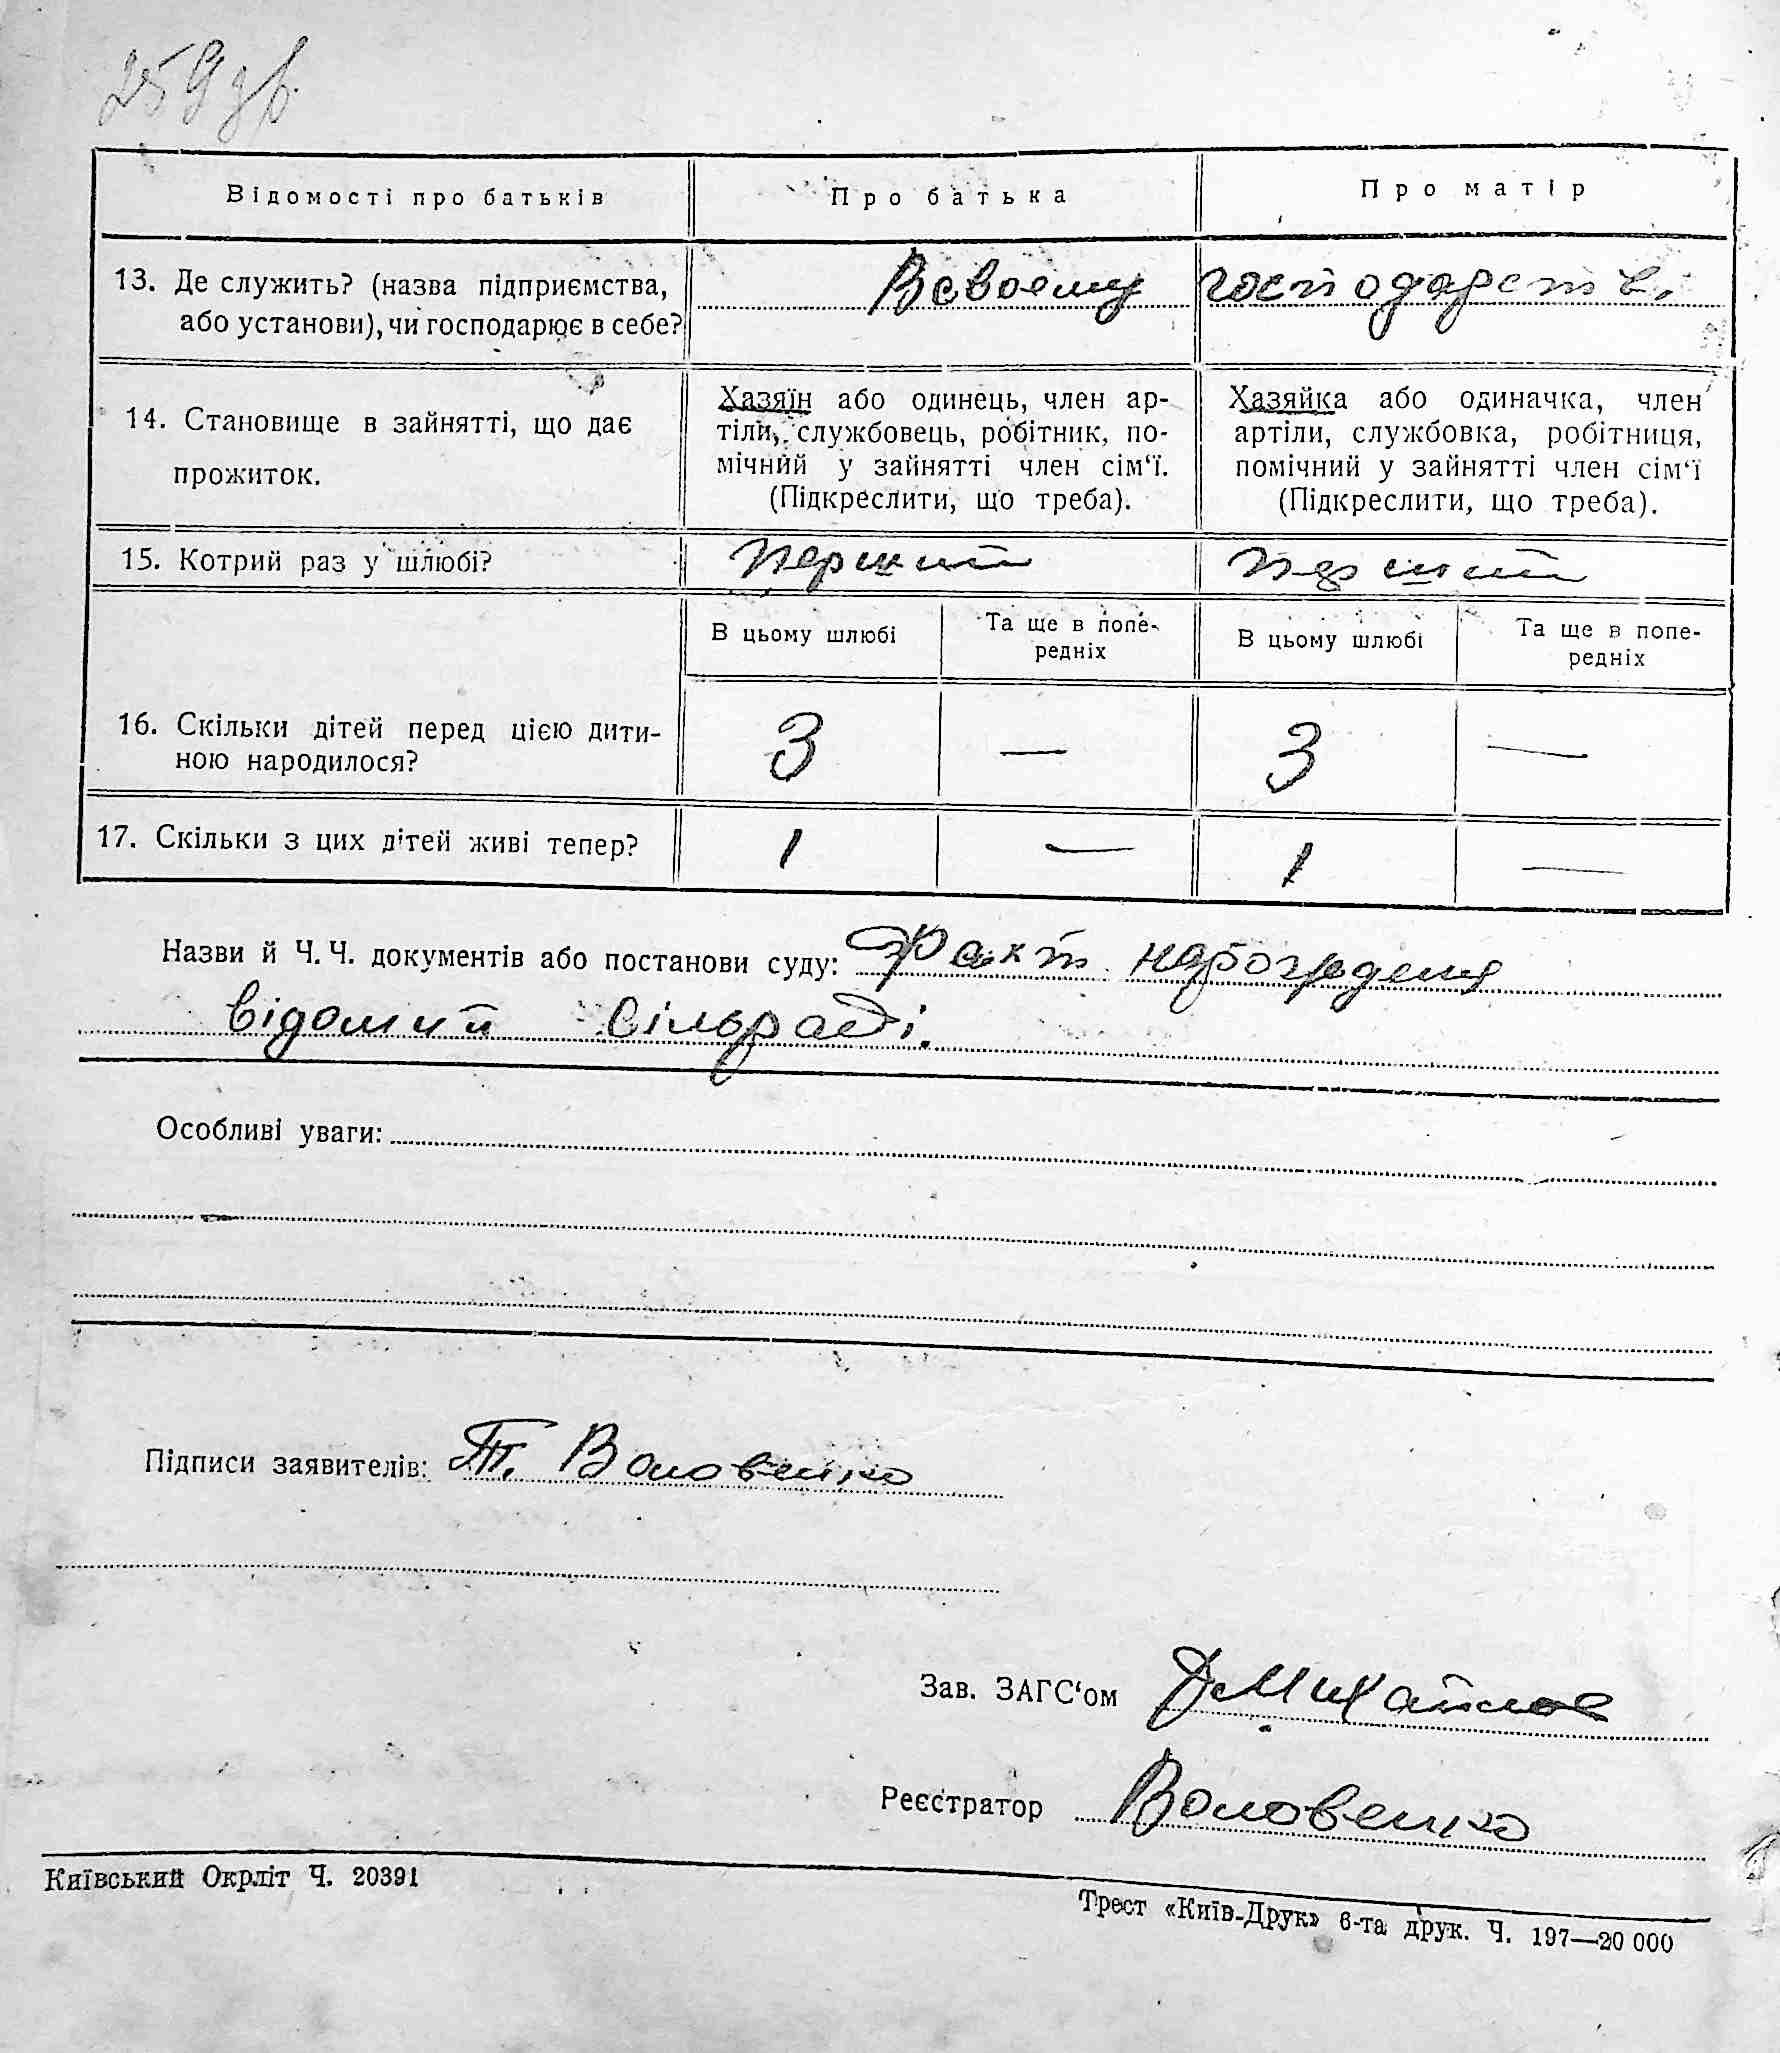 259 зв.
Відомості про батьків Про батька Про матір
13. Де служить? (назва підприємства, або установи), чи господарює в себе? В своему господарстві
14. Становище в зайнятті, що дає прожиток.
Хазяїн або одинець, член ар-
тіли, службовець, робітник, по-
мічний у зайнятті член сім‘ї.
(Підкреслити, що треба).
Хазяйка або одиначка, член
артіли, службовка, робітниця,
помічний у зайнятті член сім‘ї
(Підкреслити, що треба).
15. Котрий раз у шлюбі? перший перший
В цьому шлюбі
Та ще в попе-
редніх
В цьому шлюбі
Та ще в попе-
редніх
16. Скільки дітей перед цією дити-
ною народилося? 3 — 3 —
17. Скільки з цих дітей живі тепер? 1 — 1 —
Назви й Ч. Ч. документів або постанови суду: Факт народження
відомий сільраді.
Особливі уваги:
Підписи заявителів: Т. Воловенко
Зав. ЗАГС‘ом
Реєстратор Воловенко
Київський Окрліт Ч. 20391
Трест «Київ-Друк» 6-та друк. Ч. 197—20 000